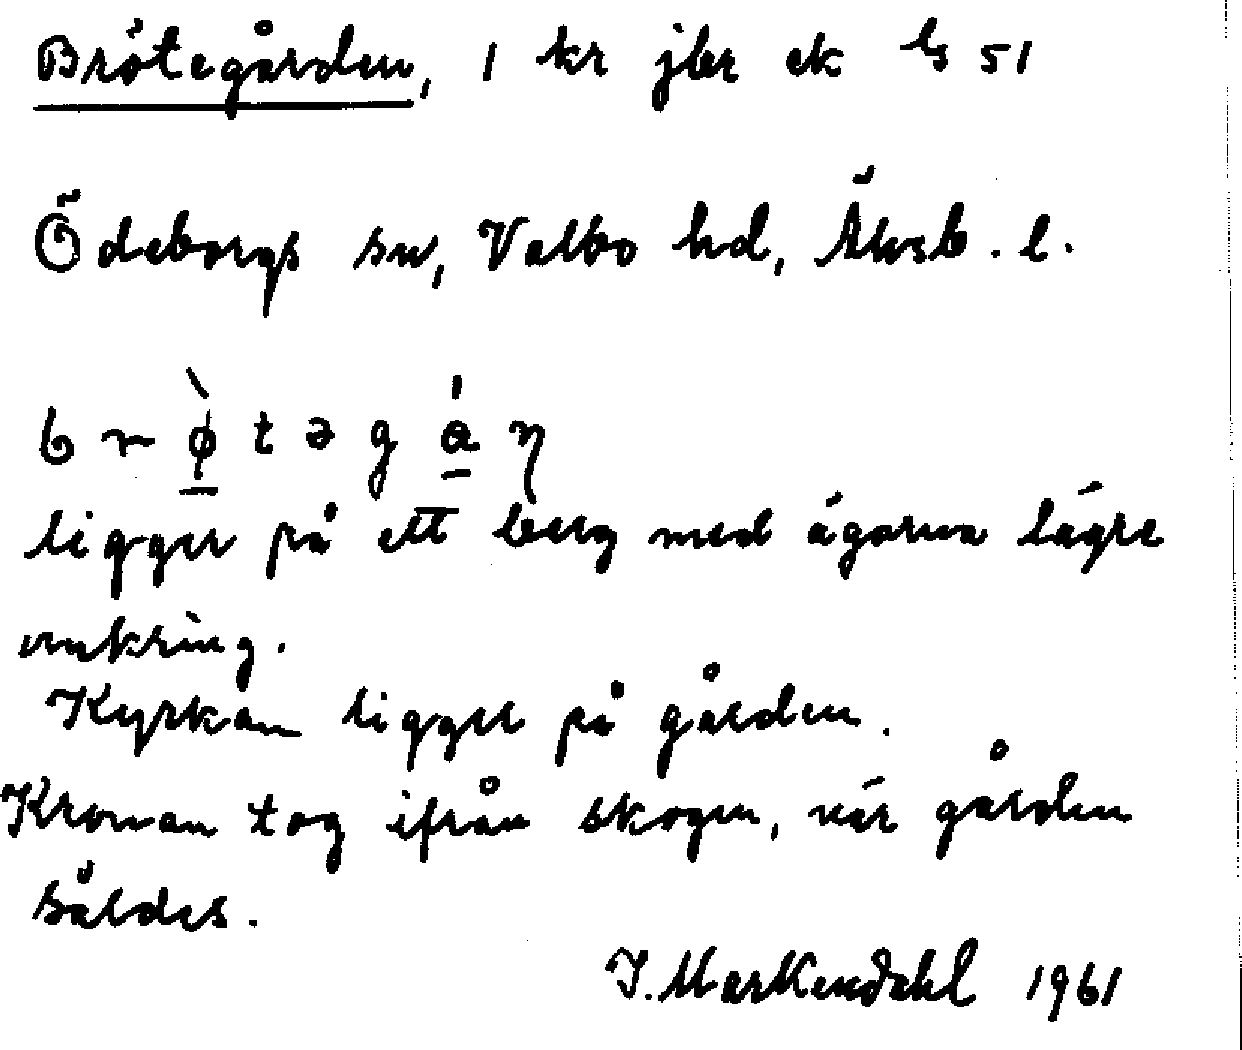 Brötegården, 1 kr jber ek G5 51
Ödeborgs sn, Valbo hd, Älvsb. l.
b r ø̀ t ə g á η
ligger på ett berg med ägorna lägre
omkring.
Kyrkan ligger på gården.
Kronan tog ifrån skogen, när gården
såldes.
I. Markendahl 1961